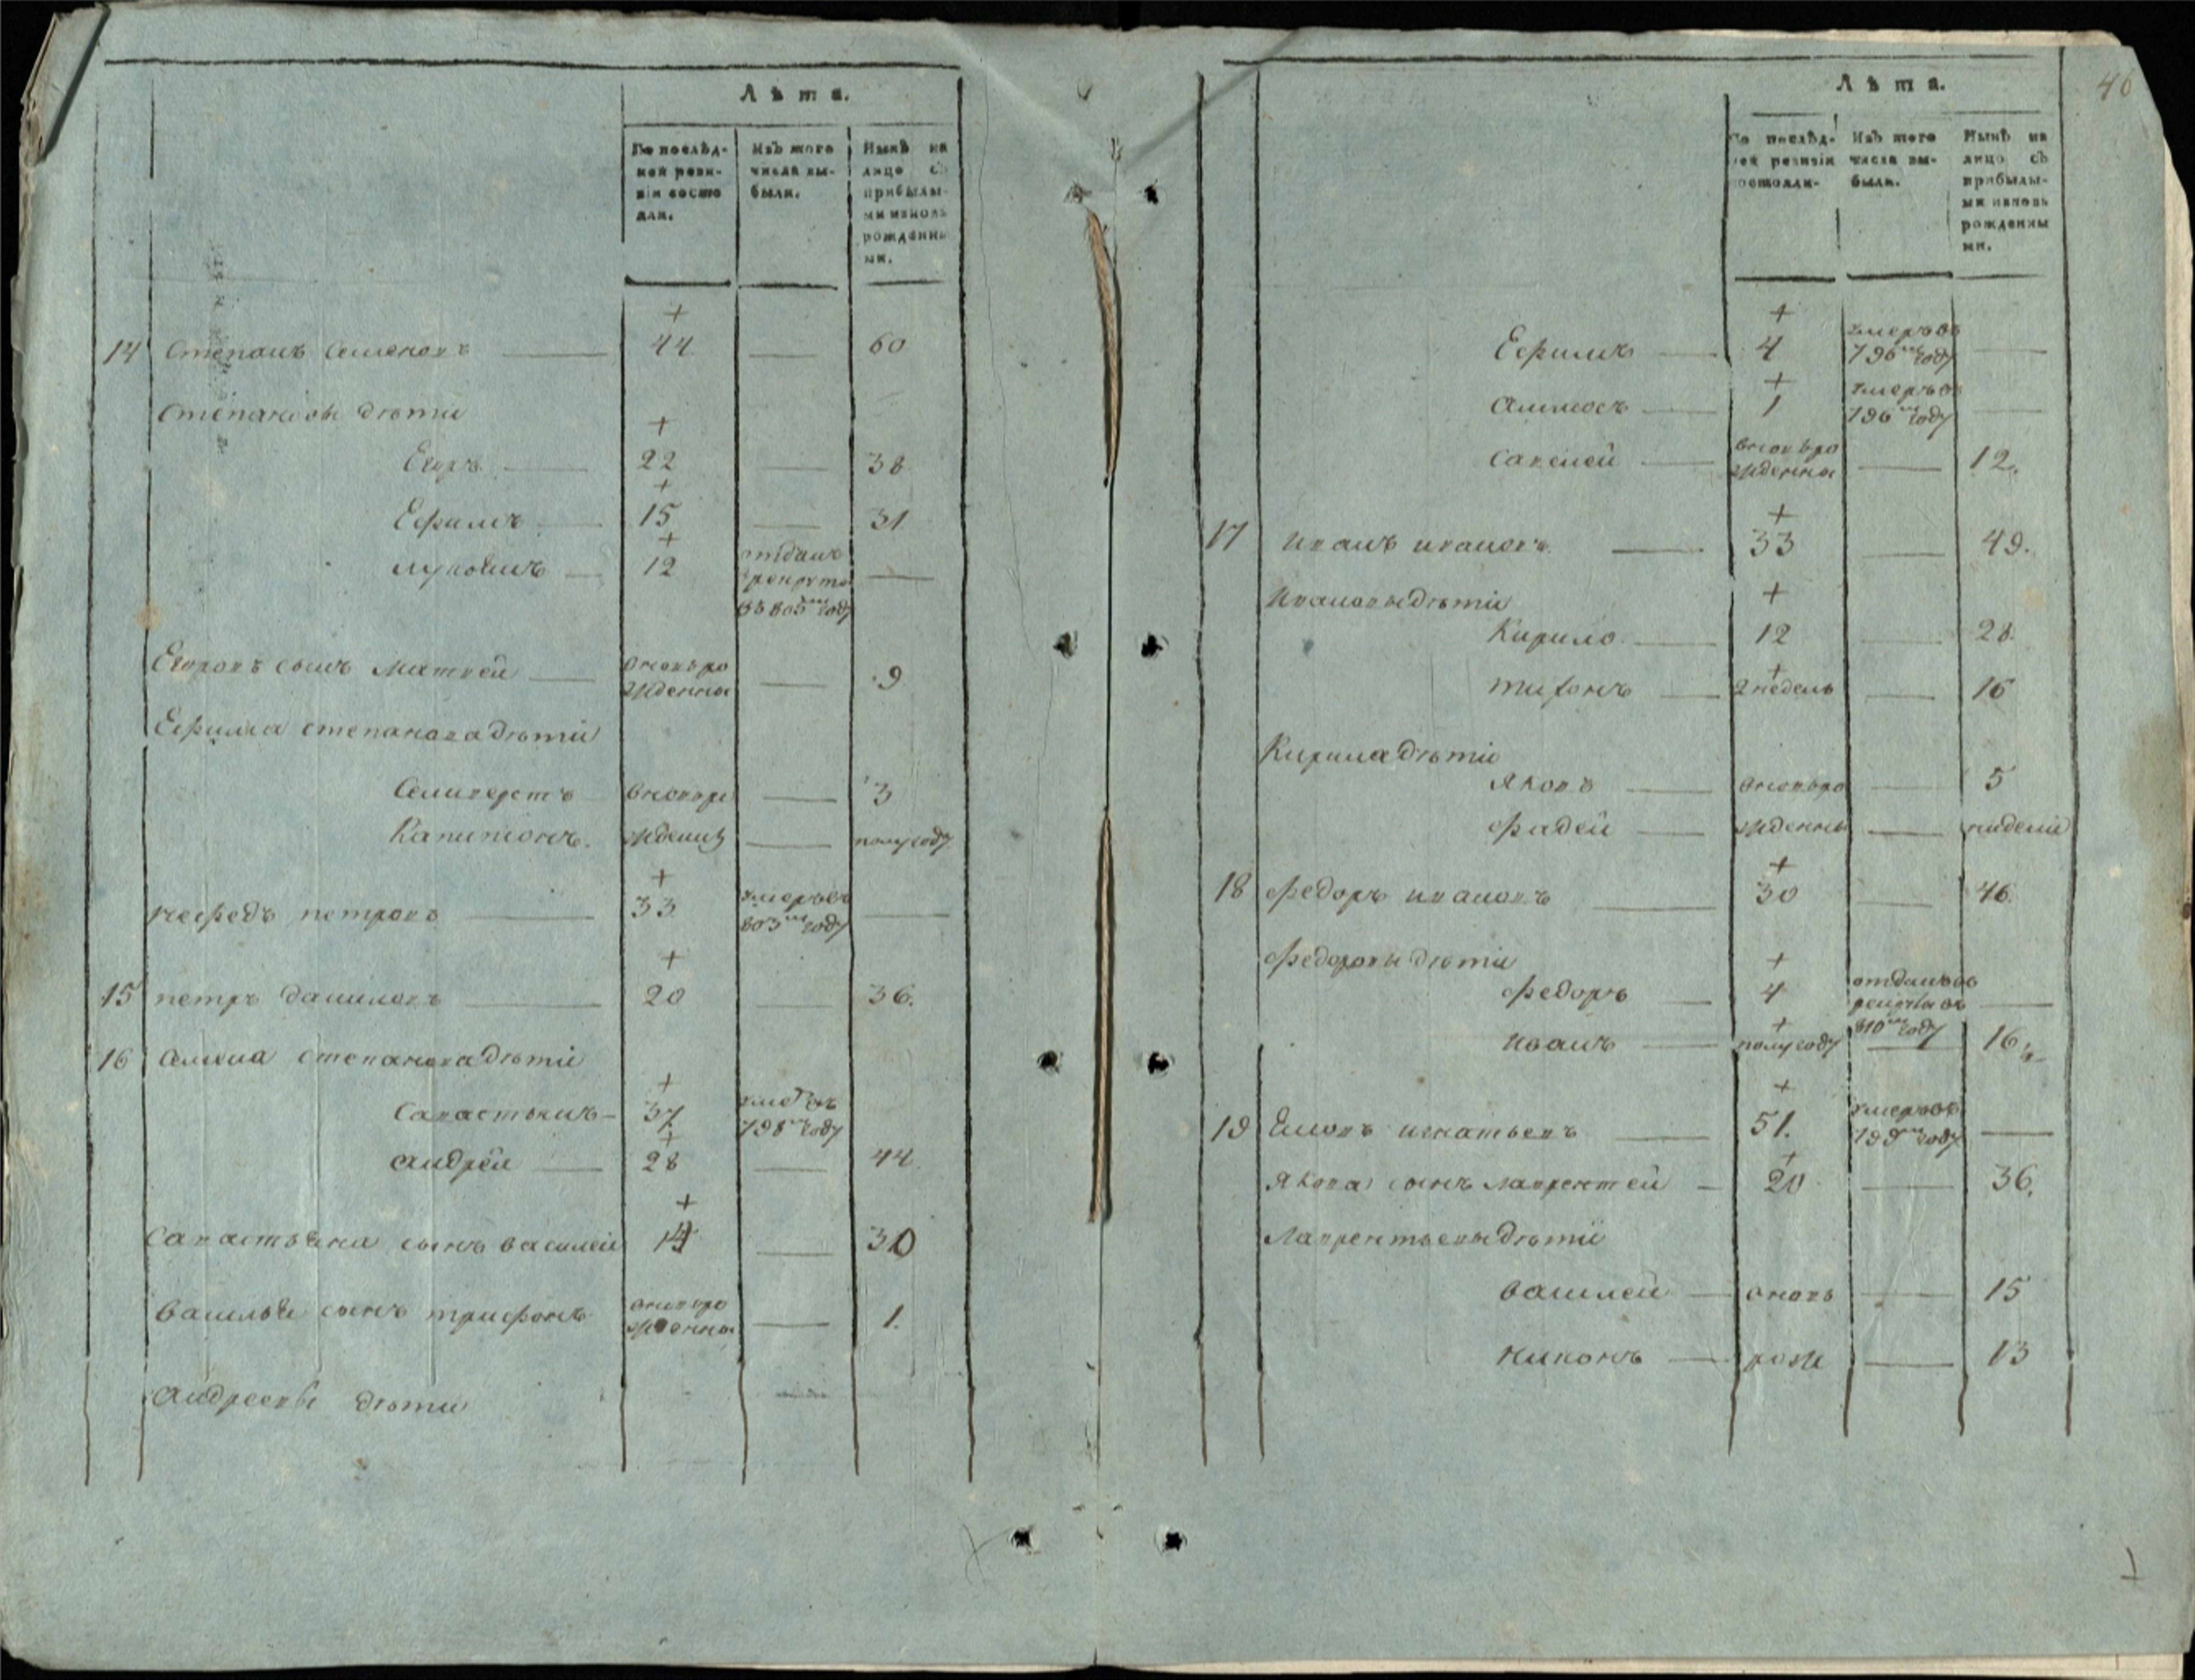 Лѣта.
По послѣд-
ней реви-
зіи состо
яли.
Изъ того
числа вы-
были.
Нынѣ на
лицо съ
прибылы-
ми и вновь
рожденны
ми.
14 Степанъ Семеновъ 44 60
Степановы дѣти
Егоръ 22 38
Ефимъ 15 31
12 отданъ
в рекруты
в 803м году
Егоровъ сынъ Матвей вновь ро
жденны 9
Ефима Степанова дѣти
Селиверстъ вновь ро 3
Капитонъ. ждены полугоду
Нефедъ Петровъ 33 умеръ въ
803м году
15 Петръ Даниловъ 20 36.
16 Степанова дѣти
Савастьянъ 37 умеръ въ
798м году
Андрей 28 44
Савастьяна сынъ Василей 14 30
Василья сынъ Трифонъ вновь ро
жденны 1.
Андреевы дѣти
46
Лѣта.
По послѣд-
ней ревизіи
состояли-
Изъ того
числа вы-
были.
Нынѣ на
лицо съ
прибылы-
ми и вновь
рожденны
ми.
Ефимъ 4 умеръ въ
796м году
Амносъ 1 умеръ въ
796м году
Савелей вновь ро
жденны 12.
17 Иванъ Ивановъ 33 49.
Ивановы дѣти
Кирило 12 28.
Тихонъ 2 недель 16
Кирила дѣти
Яковъ вновь ро 5
Фадей жденны недели
18 Федоръ Ивановъ 30 46.
Федоровы дѣти
Федоръ 4 отданъ въ
рекруты въ
810м году
Иванъ полугоду 16 ½
19 Игнатьевъ 51. умеръ въ
799м году
Якова сынъ Лаврентей 20 36.
Лаврентьевы дѣти
Василей вновь 15
Никонъ рож 13